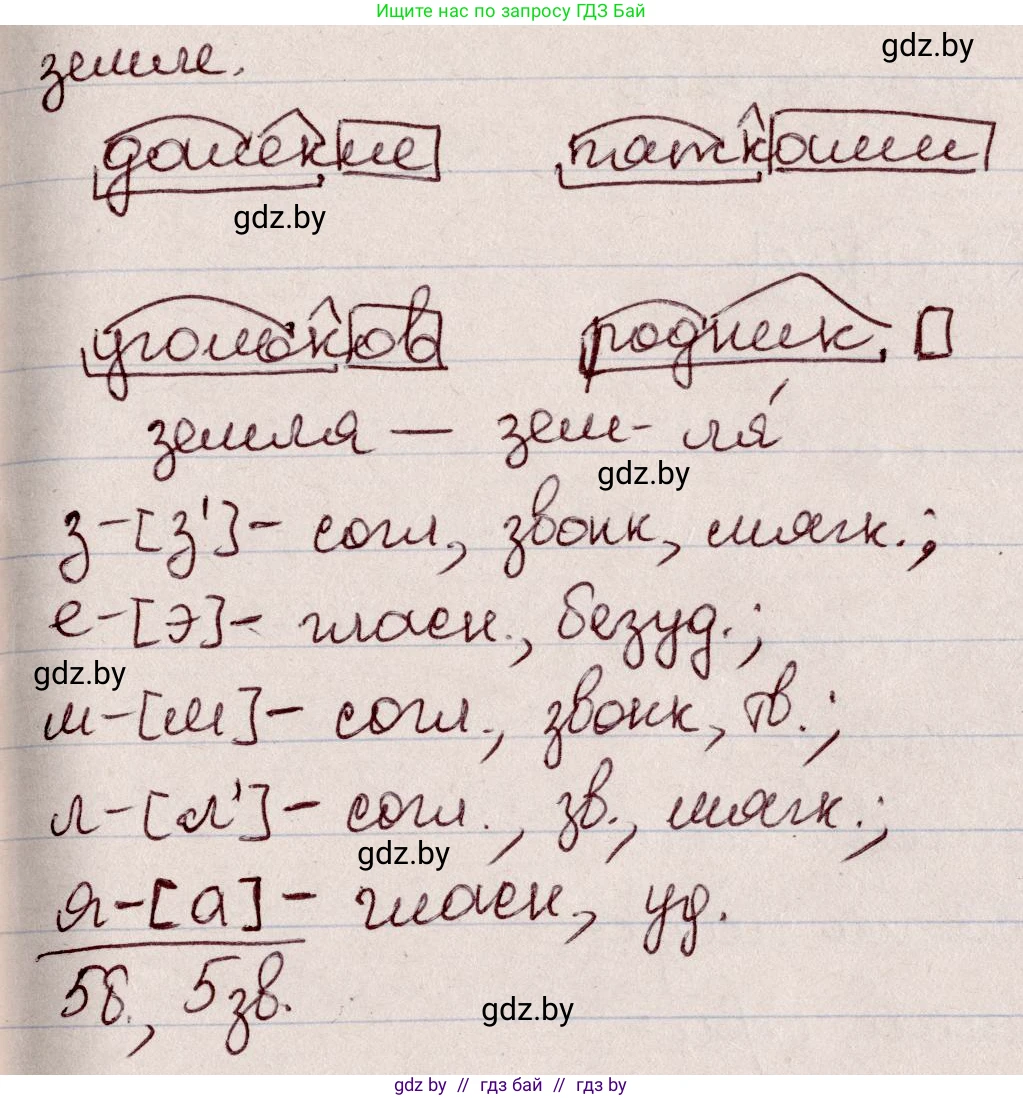 Ищите нас по запросу ГДЗ Бай
gdz.by
земле.
далекие
gdz.by
уголков родник
земля — зем- ля́
gdz.by
з-[з']- согл., звонк, мягк.;
е-[э]- гласн., безуд.;
gdz.by
м-[м]- согл., звонк, тв.;
л-[л']- согл., зв., мягк.;
gdz.by
я-[а]- гласн., уд.
5б., 5зв.
gdz.by
gdz by // гдз бай // gdz by